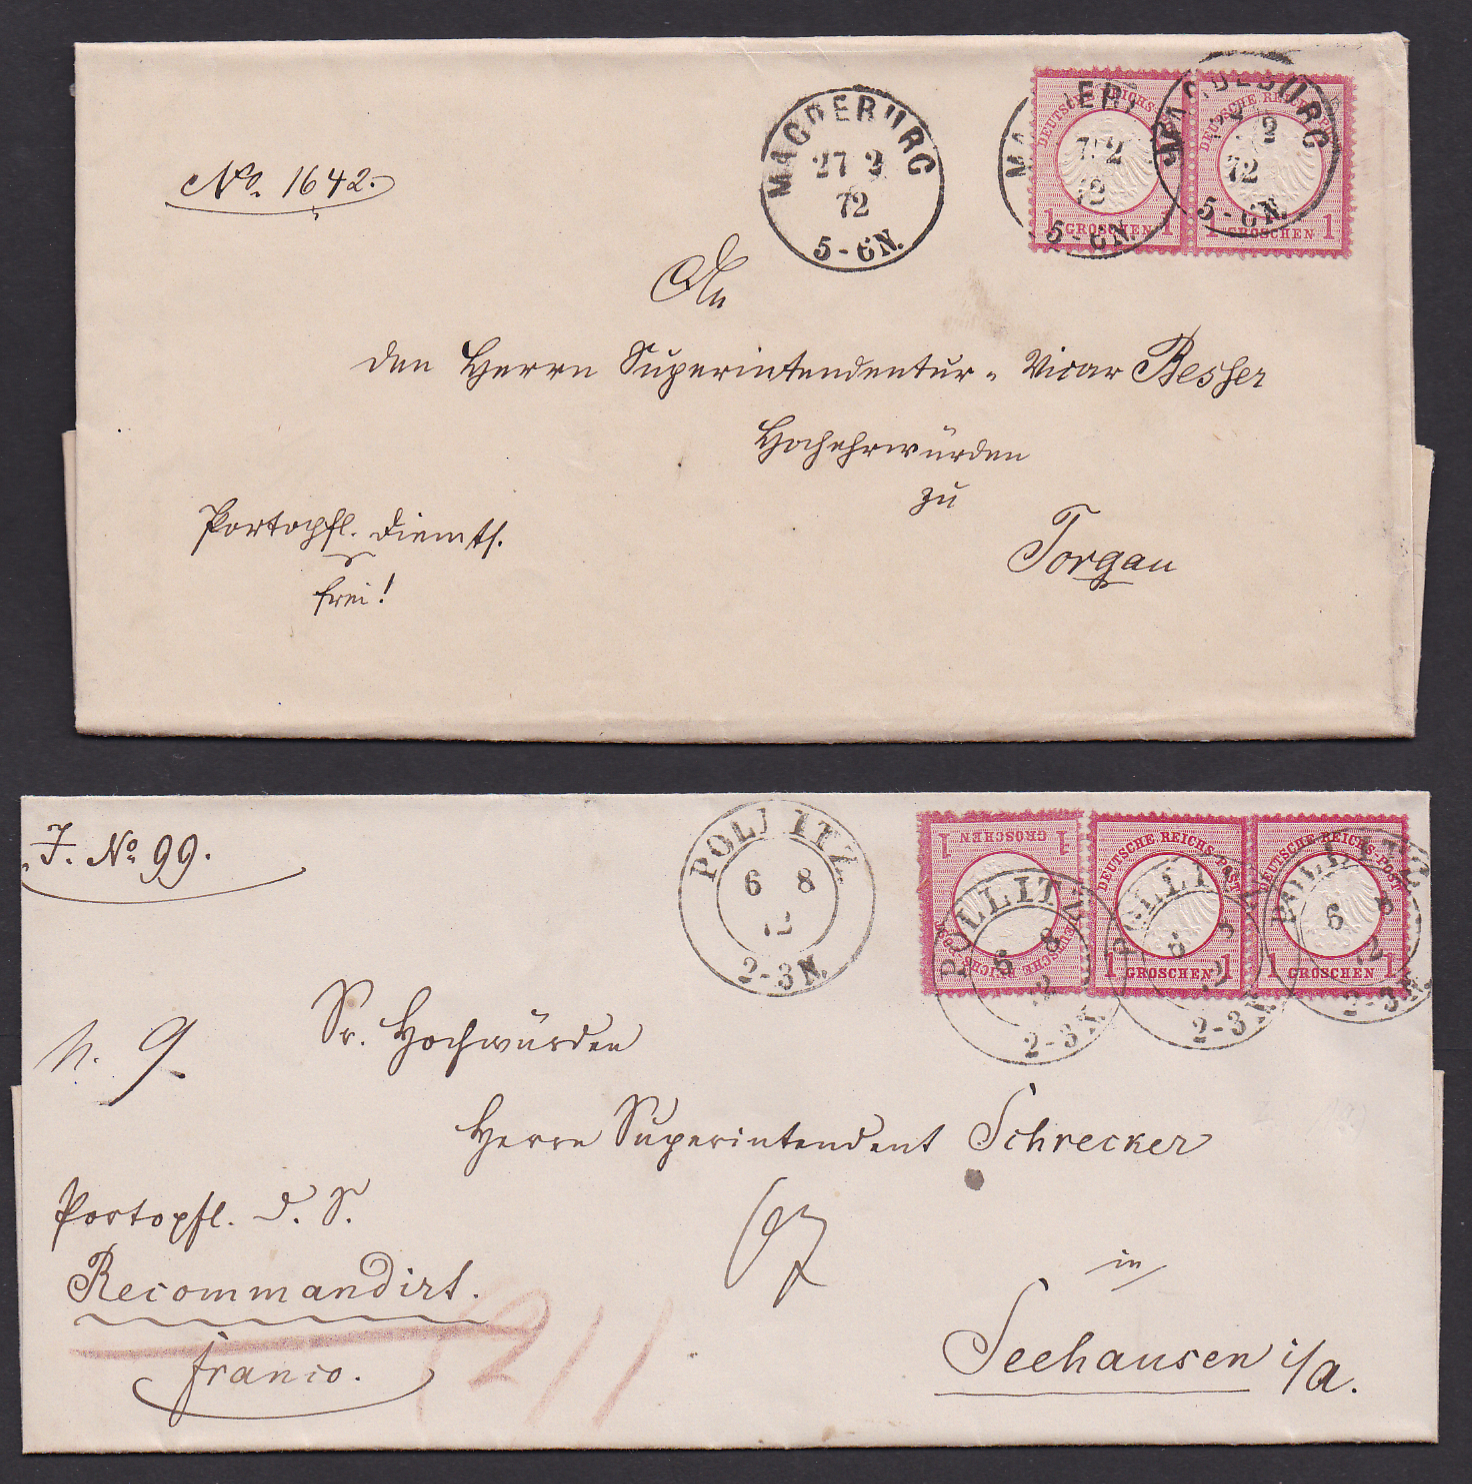 No. 1642.
MAGDEBURG
27 2
72
5-6N.
MAGDEBURG
72
5-6N.
DEUTSCHE REICHS-POST
1 GROSCHEN 1
DEUTSCHE REICHS-POST
1 GROSCHEN 1
An
den Herrn Superintendentur-Vicar Besser
Hochehrwürden
zu
Torgau
Portopfl. Diensts.
frei!
J. No. 99.
POLLITZ
6 8
72
2-3N.
DEUTSCHE REICHS-POST
1 GROSCHEN 1
DEUTSCHE REICHS-POST
1 GROSCHEN 1
DEUTSCHE REICHS-POST
1 GROSCHEN 1
POLLITZ
6 8
72
2-3N.
POLLITZ
6 8
72
2-3N.
POLLITZ
6 8
72
2-3N.
N. 9
Sr. Hochwürden
Herrn Superintendent Schrecker
in
Seehausen i/A.
Portopfl. D. S.
Recommandirt.
franco.